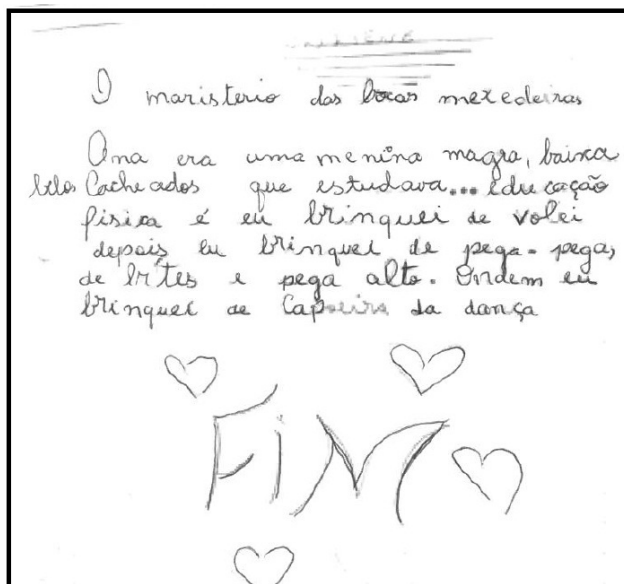 O maristerio das bocas mexedeiras
Ana era uma menina magra, baixa
belos Cacheados que estudava... educação
fisica é eu brinquei de volei
depois eu brinquei de pega-pega,
de e pega alto. Ondem eu
brinquei de Capoeira da dança
FiM